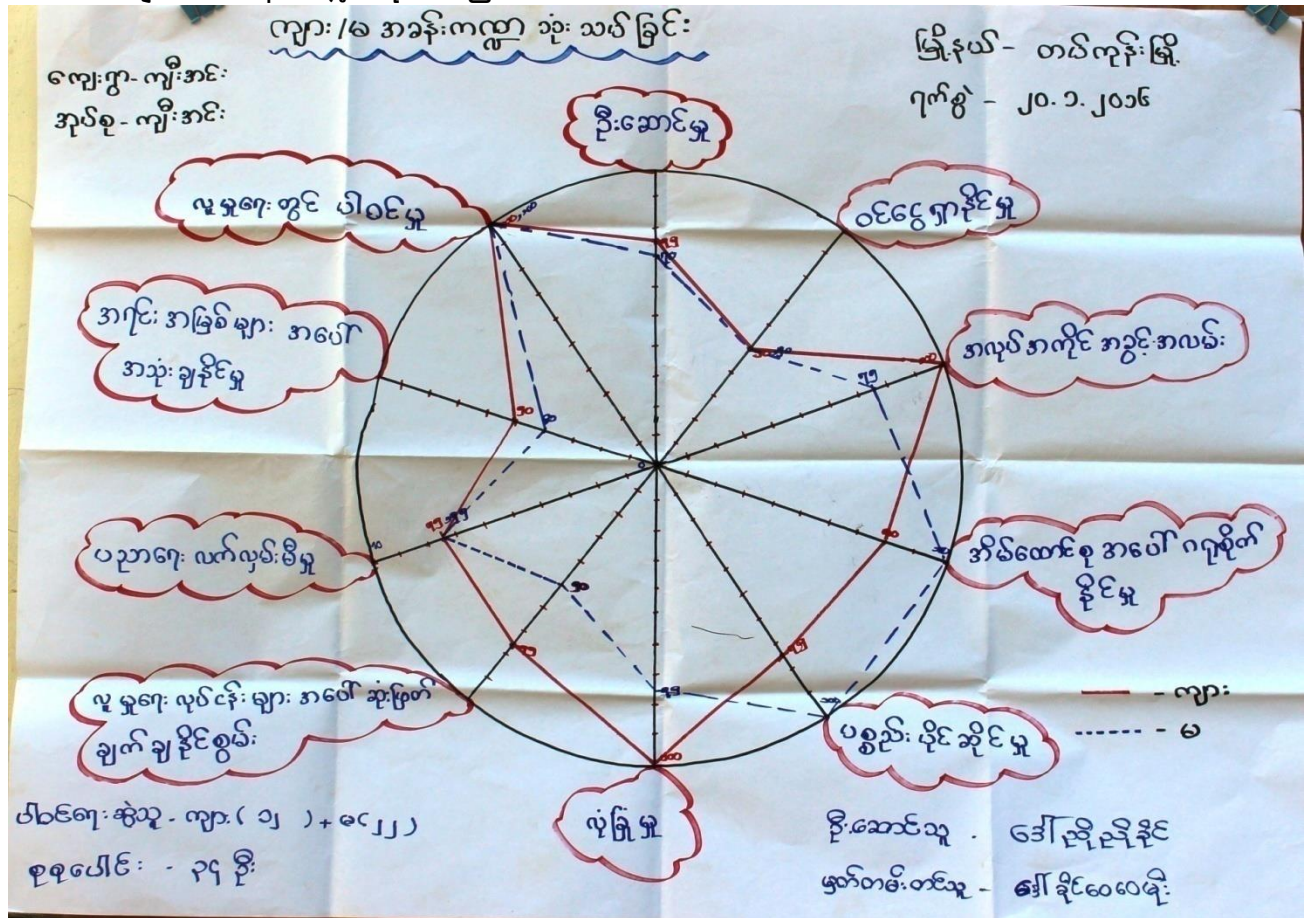 ကျား/မ အခန်းကဏ္ဍ သုံး သပ် ခြင်း
ကျေးရွာ - ကျီးအင်း
အုပ်စု - ကျီးအင်း
မြို့နယ် - တပ်ကုန်းမြို့
ရက်စွဲ - ၂၀.၁.၂၀၁၆
ဦးဆောင်မှု
ဝင်ငွေရှာနိုင်မှု
အလုပ်အကိုင် အခွင့်အလမ်း
အိမ်ထောင်စု အပေါ် ဂရုစိုက်
နိုင်မှု
ပစ္စည်း ပိုင်ဆိုင်မှု
လုံခြုံမှု
လူမှုရေး လုပ်ငန်းများ အပေါ် ဆုံးဖြတ်
ချက်ချနိုင်စွမ်း
ပညာရေး လက်လှမ်းမီမှု
အရင်းအမြစ်များ အပေါ်
အသုံးချနိုင်မှု
လူမှုရေးတွင် ပါဝင်မှု
၇၅
၇၀
၁၀၀
၇၅
၈၀
၇၅
၁၀၀
၇၅
၅၀
၇၅
၅၀
၄၀
- ကျား
- မ
ပါဝင်ရေးဆွဲသူ - ကျား(၁၂) + မ(၂၂)
စုစုပေါင်း - ၃၄ ဦး
ဦးဆောင်သူ - ဒေါ်ညိုညိုနိုင်
မှတ်တမ်းတင်သူ - ဒေါ်ခိုင်ဝေဝေဖိုး